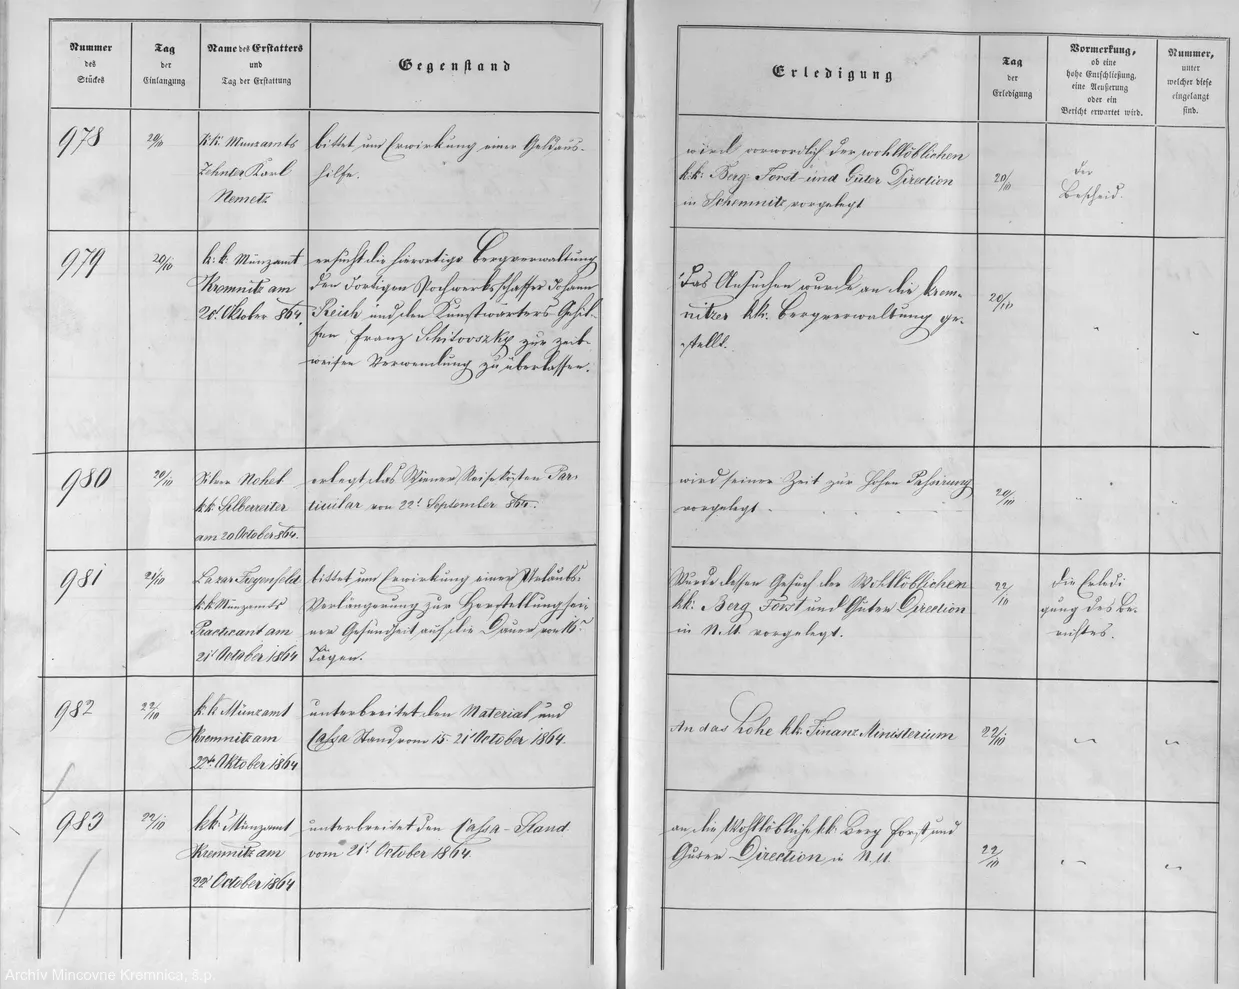 Nummer
des
Stückes
Tag
der
Einlangung
Name des Erstatters
und
Tag der Erstattung
Gegenstand
Erledigung
Tag
der
Erledigung
Vormerkung,
ob eine
hohe Entschließung,
eine Äußerung
oder ein
Bericht erwartet wird.
Nummer,
unter
welcher diese
eingelangt
sind.
978
20/10
k.k. Münzamts
Zehnter Karl
Nemetz
bittet um Erwirkung einer Geldaus-
hilfe.
wird vorwortlich der wohllöblichen
k.k. Berg Forst- und Güter Direction
in Schemnitz vorgelegt
20/10
der
Bescheid.
979
20/10
k. k. Münzamt
Kremnitz am
20t Oktober 864.
ersucht die hierortige Bergverwaltung
den dortigen Pochwerksschaffer Johann
Reich und den Kunstwärters Gehil-
fen Franz Schitovszky zur zeit-
weisen Verwendung zu überlassen.
Das Ansuchen wurde an die krem-
nitzer kk. Bergverwaltung ge-
stellt.
20/10
980
20/10
Nohel
k.k. Silberreiter
am 20 October 864.
erlegt das Wiener Reisekosten Par-
ticular vom 22t September 864.
wird seiner Zeit zur hohen
vorgelegt
20/10
981
21/10
Lazar
k.k. Münzamts
Practicant am
21t October 1864
bittet um Erwirkung einer Urlaubs-
Verlängerung zur Herstellung sei-
ner Gesundheit auf die Dauer von
Tägen.
Wurde dessen Gesuch der Wohllöblichen
kk. Berg Forst und Güter Direction
in N.U. vorgelegt.
22/10
die Erledi
gung des Be-
richtes.
982
22/10
k.k. Münzamt
Kremnitz am
22t Oktober 1864
unterbreitet den Material und
Cassa Stand vom 15-21t October 1864.
An das Hohe kk. Finanz Ministerium
22/10
983
22/10
kk. Münzamt
Kremnitz am
22t October 1864
unterbreitet den Cassa-Stand
vom 21t October 1864.
an die Wohllöbliche kk. Berg Forst und
Güter Direction in N.U.
22/10
Archív Mincovne Kremnica, š.p.